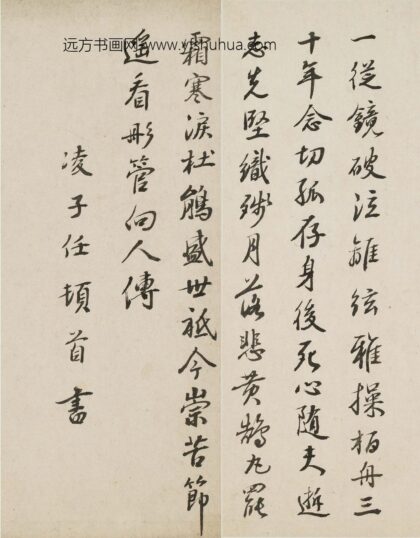 远方书画网
一從鏡破泣離絃雅操栢舟三
十年念切孤存身後死心隨夫逝
志先堅織殘月落悲黃鵠丸罷
霜寒淚杜鵑盛世祗今崇苦節
遙看彤管向人傳
凌子任頓首書